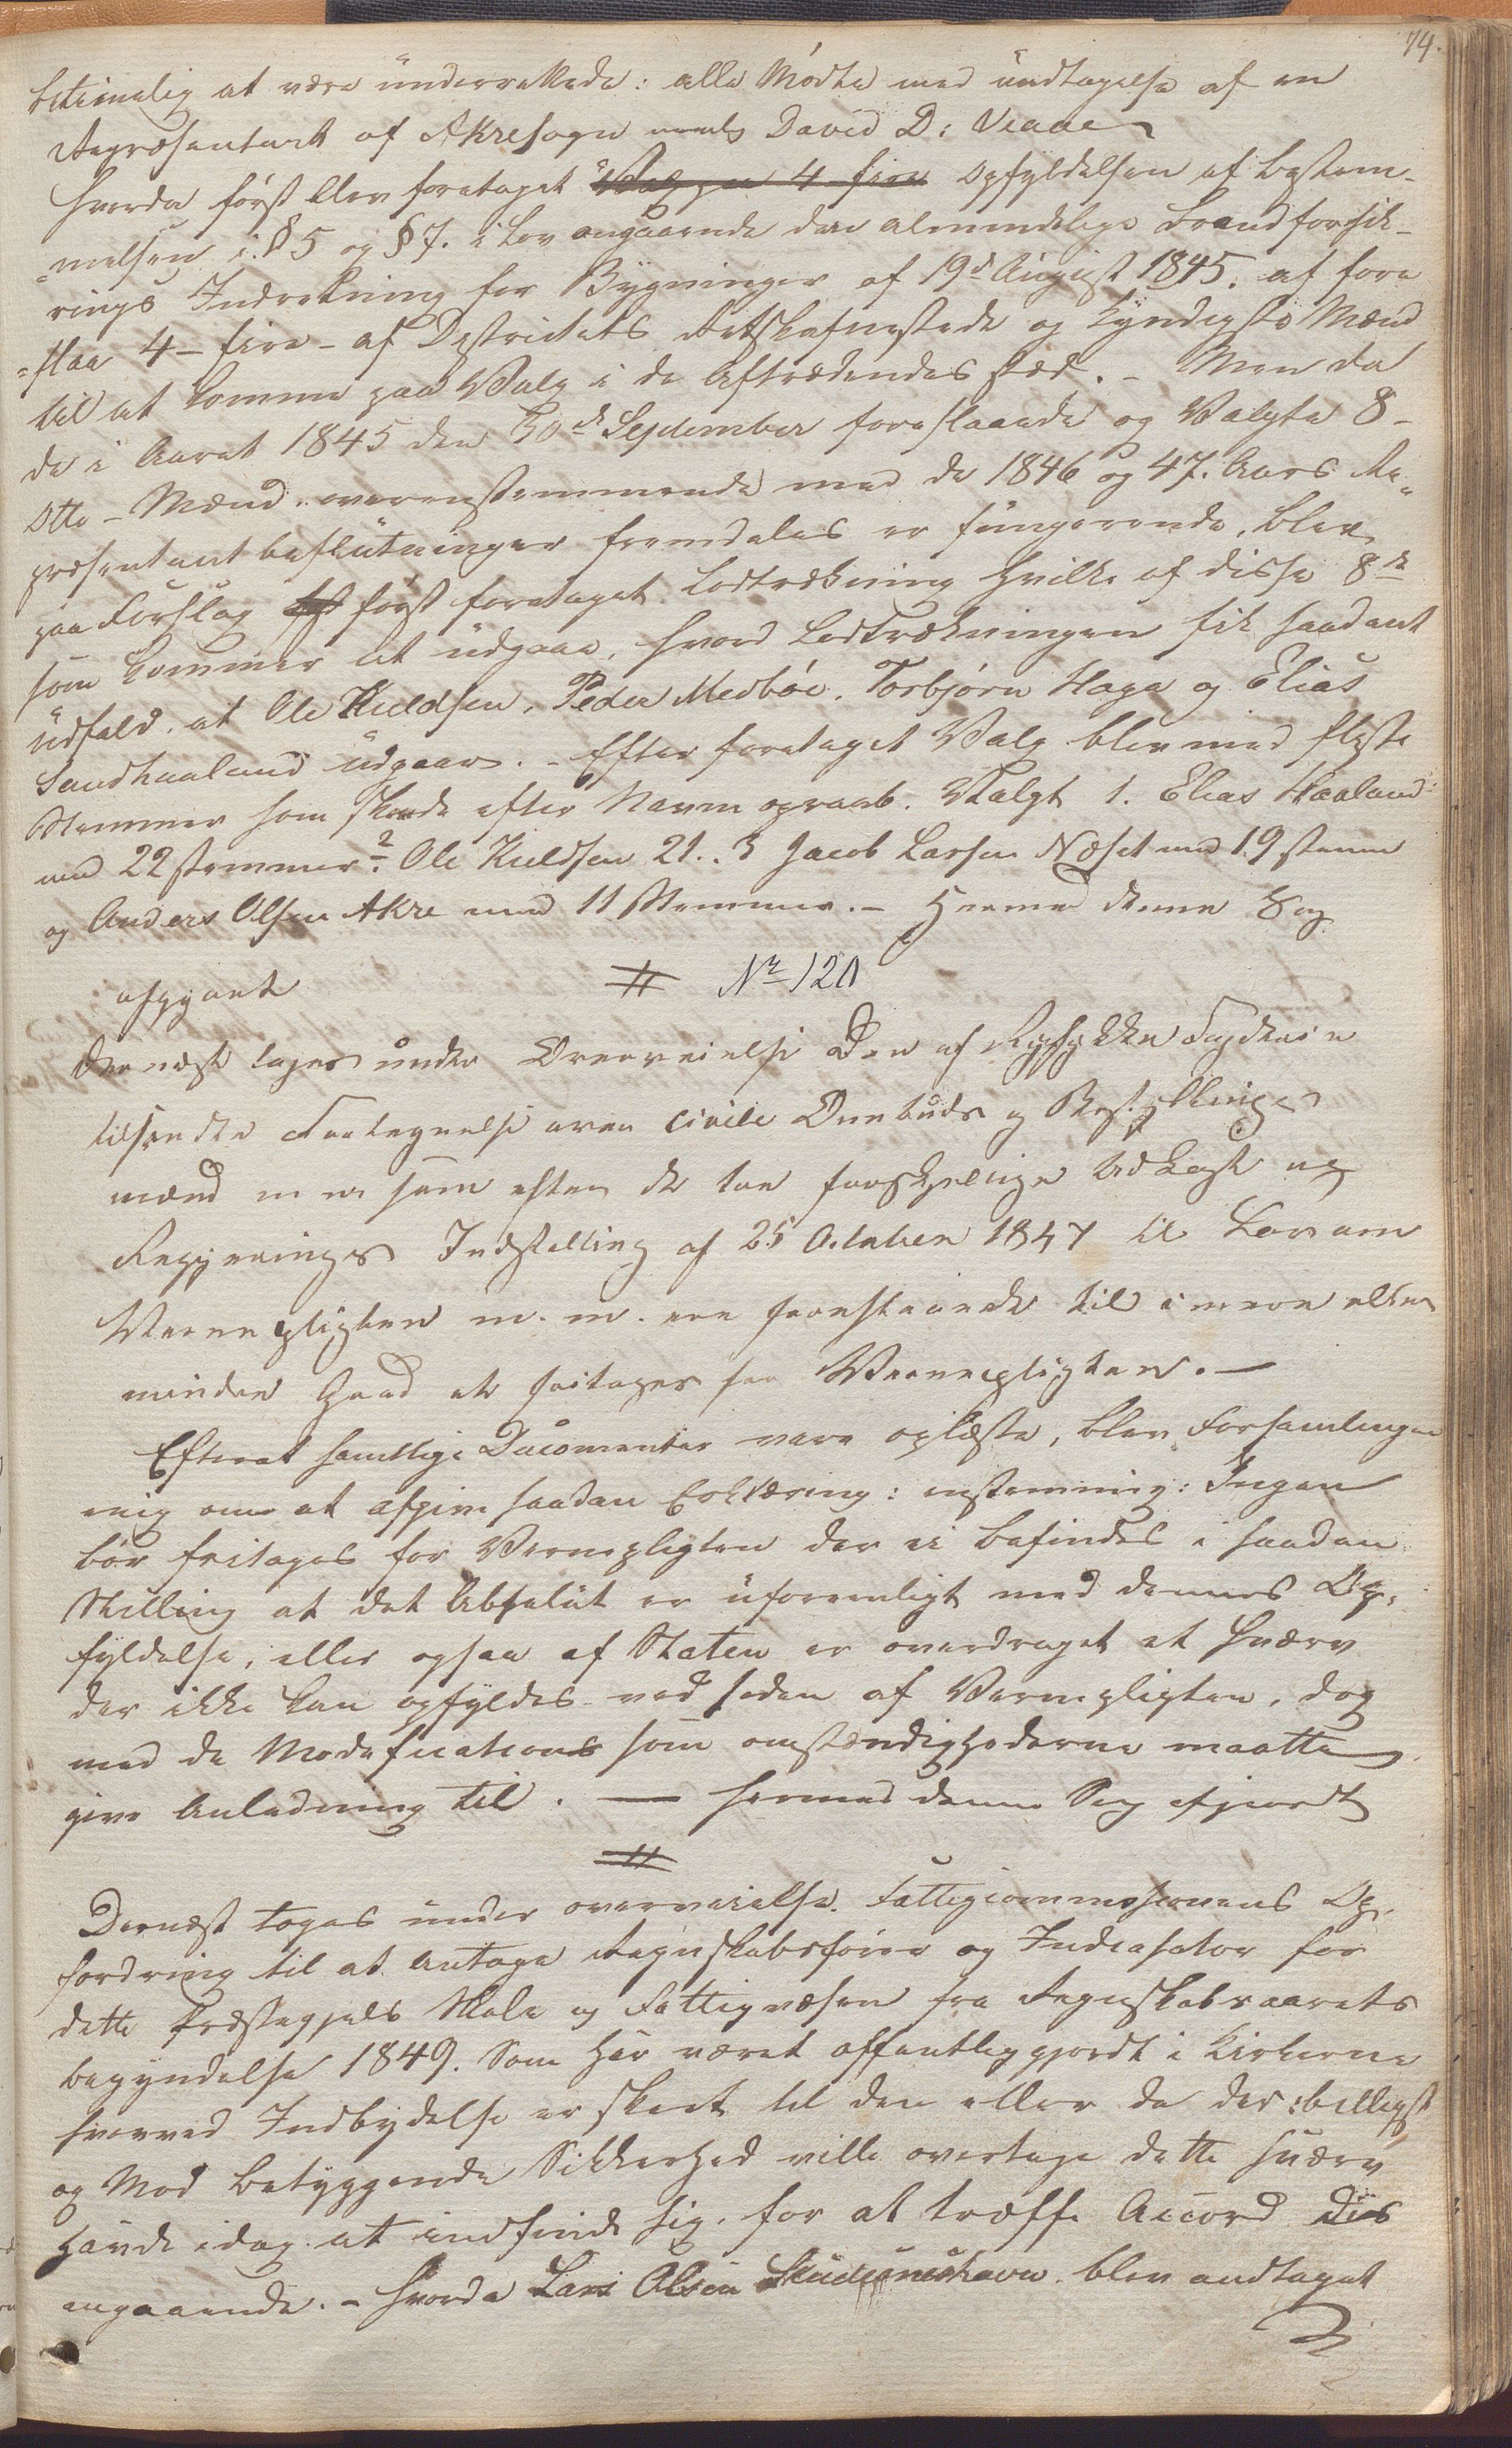 74.
betimelig at være underrettede: alle Mødte med undtagelse af en
Repræsentant af Akresogn navnlig David D: Veaae
Hvorda først blev foretaget Valg paa 4 fire Opfyldelsen af bestem-
=melsen i § 5 og § 7. i Lov angaaende den almindelige Brandforsik-
rings Indretning for Bygninger af 19de August 1845. at fore
=slaa 4 - fire - af Districtets Retskafneste og kyndigste Mænd
til at komme paa Valg i de Aftrædendes sted. - Men da
de i Aaret 1845 den 30de September foreslaaede og Valgte 8 -
Otte - Mænd overensstemmende med de 1846 og 47. Aars Re-
præsentantbeslutninger fremdeles er fungerende, blev
paa Forslag først foretaget Lodtrækning hvilke af disse 8te
som kommer at udgaae, hvord Lodtrækningen fik saadant
Udfald. at Ole Kieldsen, Peder Medbøe, Torbjørn Haga og Elias
Sandhaaland udgaaer. - Efter foretaget Valg blev med fleste
Stemmer som skede efter Navne opraab. Valgt 1. Elias Haaland
med 22 stemmer 2 Ole Kieldsen 21.. 3 Jacob Larsen Næset med 19 stemme
og Anders Olsen Akre med 11 Stemmer. - Hermed denne Sag
afgjort
# Nr 120
Dernæst toges under Overveielse Den af Ryfylke Fogderie
tilsendte Fortegnelse over Civile Ombuds og Bestillings
mænd m m som efter de to forskjellige Udkast og
Regjerings Indstilling af 25 October 1847 til Lov om
Værnepligten m. m. ere foreslaaede til i mere eller
mindre Grad at fritages for Værnepligten. -
Efterat samtlige Documenter vare oplæste, blev Forsamlingen
enig om at afgive saadan Erklæring: enstemmig: Ingen
bør fritages for Vernepligten der ei befindes i saadan
Stilling at det Absolut er uforenligt med dennes Op-
fyldelse, eller ogsaa af Staten er overdraget et Hværv
der ikke kan opfyldes ved siden af Vernepligten, dog
med de Modefications som omstændighederne maatte
give Anledning til. — Hermed denne Sag afgjordt
#
Dernæst toges under overveielse. Fattigcommissionens Op-
fordring til at Antage Regnskabsfører og Indcasator for
dette Præstegjels Skole og Fattigvæsen fra Regnskabsaarets
begyndelse 1849. Som har været offentliggjordt i Kirkerne
hvorved Indbydelse er skeet til den eller de der billigst
og Mod betryggende Sikkerhed ville overtage dette Hværv
havde idag at indfinde sig, for at træffe Accord dis
angaaende. - Hvorda Lars Olsen Skudesneshavn blev andtaget